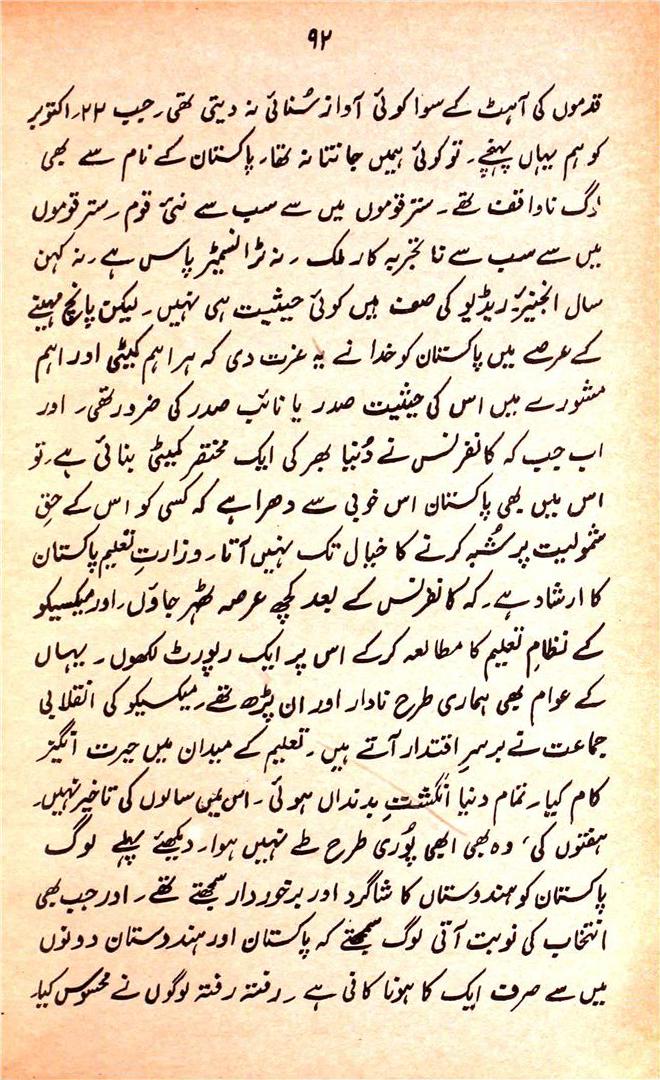 ۹۲
قدموں کی آہٹ کے سوا کوئی آواز سُنائی نہ دیتی تھی۔ جب ۲۲؍اکتوبر
کو ہم یہاں پہنچے۔ تو کوئی ہمیں جانتا نہ تھا۔ پاکستان کے نام سے بھی
لوگ ناواقف تھے۔ ستر قوموں میں سے سب سے نئی قوم۔ ستر قوموں
میں سے سب سے ناتجربہ کار ملک۔ نہ ٹرانسمیٹر پاس ہے۔ نہ کہن
سال انجنیر۔ ریڈیو کی صف میں کوئی حیثیت ہی نہیں۔ لیکن پانچ مہینے
کے عرصے میں پاکستان کو خدا نے یہ عزت دی کہ ہر اہم کمیٹی اور اہم
مشورے میں اس کی حیثیت صدر یا نائب صدر کی ضرور تھی۔ اور
اب جب کہ کانفرنس نے دُنیا بھر کی ایک مختصر کمیٹی بنائی ہے۔ تو
اس میں بھی پاکستان اس خوبی سے دھرا ہے کہ کسی کو اس کے حقِ
شمولیت پر شُبہ کرنے کا خیال تک نہیں آتا۔ وزارتِ تعلیم پاکستان
کا ارشاد ہے۔ کہ کانفرنس کے بعد کچھ عرصہ ٹھہر جاؤں۔ اور میکسیکو
کے نظامِ تعلیم کا مطالعہ کرکے اس پر ایک رپورٹ لکھوں۔ یہاں
کے عوام بھی ہماری طرح نادار اور ان پڑھ تھے۔ میکسیکو کی انقلابی
جماعت نے برسرِ اقتدار آتے ہیں۔ تعلیم کے میدان میں حیرت انگیز
کام کیا۔ تمام دنیا انگشتِ بدنداں ہوئی۔ اس میں سالوں کی تاخیر نہیں۔
ہفتوں کی، وہ بھی ابھی پُوری طرح طے نہیں ہوا۔ دیکھئے پہلے لوگ
پاکستان کو ہندوستاں کا شاگرد اور برخوردار سمجھتے تھے۔ اور جب بھی
انتخاب کی نوبت آتی لوگ سمجھتے کہ پاکستان اور ہندوستان دونوں
میں سے صرف ایک کا ہونا کافی ہے۔ رفتہ رفتہ لوگوں نے محسوس کیا۔